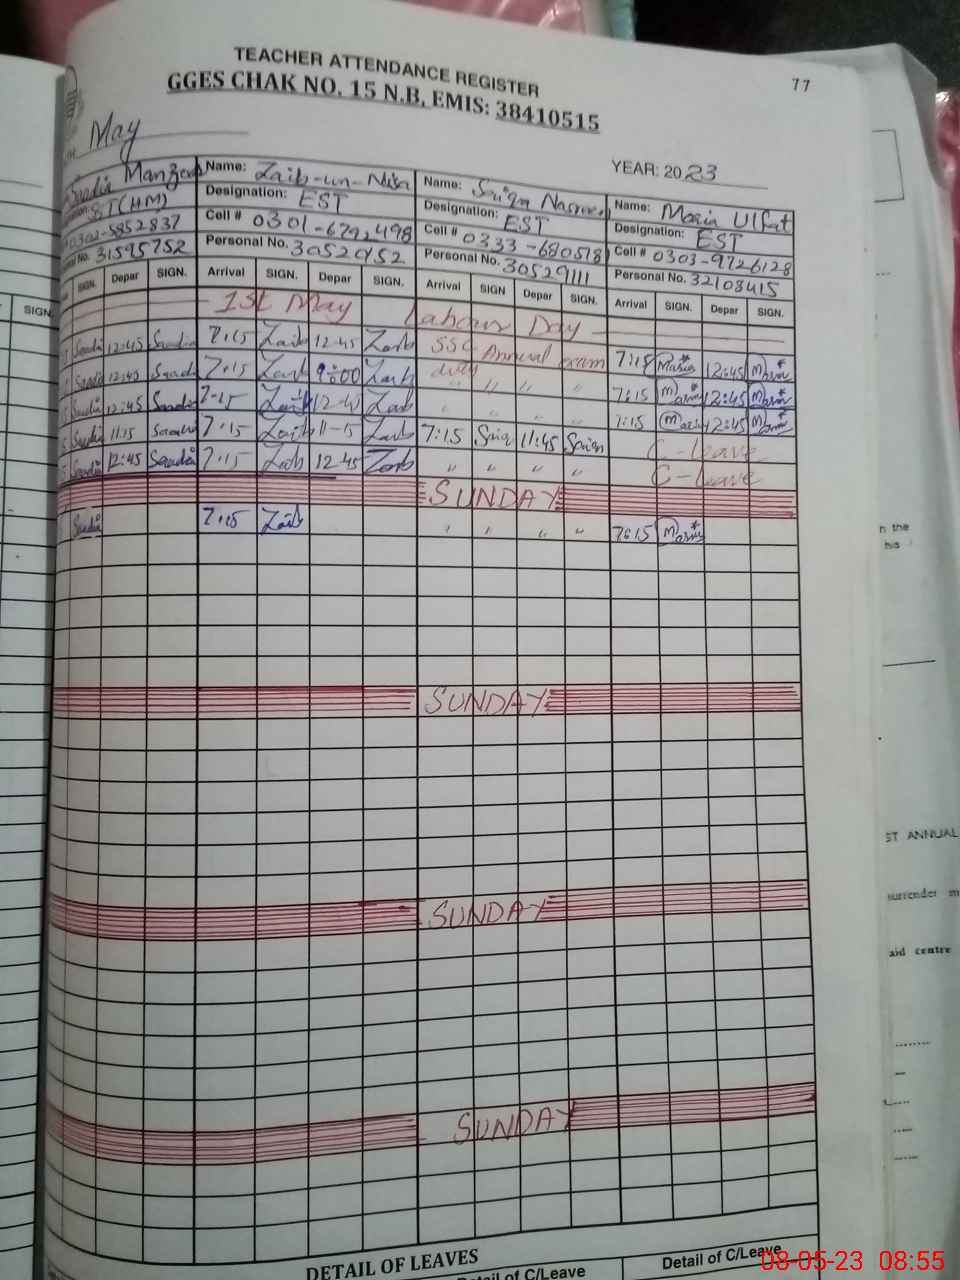 TEACHER ATTENDANCE REGISTER
77
GGES CHAK NO. 15 N.B, EMIS: 38410515
May
YEAR: 2023
Saadia Name: Zaib-un-Nisa Name: Saiqa Name: Maria Ulfat
ST(HM) Designation: EST Designation: EST Designation: EST
Cell # 0301- Cell # 0333-680578 Cell # 0303-9726128
31595752 Personal No. 30529952 Personal No. 30529111 Personal No. 32108415
SIGN. SIGN. Depar SIGN. Arrival SIGN. Depar SIGN. Arrival SIGN Depar SIGN. Arrival SIGN. Depar SIGN.
1st May Labour Day
Saadia 12:45 Saadia 7:15 Zaib 12:45 Zaib SSC Annual exam 7:15 Maria 12:45 Maria
Saadia 12:45 Saadia 7:15 Zaib 9:00 Zaib duty " " " 7:15 Maria 12:45 Maria
Saadia 12:45 Saadia 7:15 Zaib Zaib " " " " 7:15 Maria 12:45 Maria
Saadia 11:15 Saadia 7:15 Zaib 11-15 Zaib 7:15 Saiqa 11:45 Saiqa C-leave
Saadia 12:45 Saadia 7:15 Zaib 12:45 Zaib " " " " C-leave
SUNDAY
Saadia 7:15 Zaib " " " " 7:15 Maria
SUNDAY
SUNDAY
SUNDAY
DETAIL OF LEAVES
Detail of C/Leave Detail of C/Leave
n the
his
ST ANNUAL
surrender m
aid centre
08-05-23 08:55